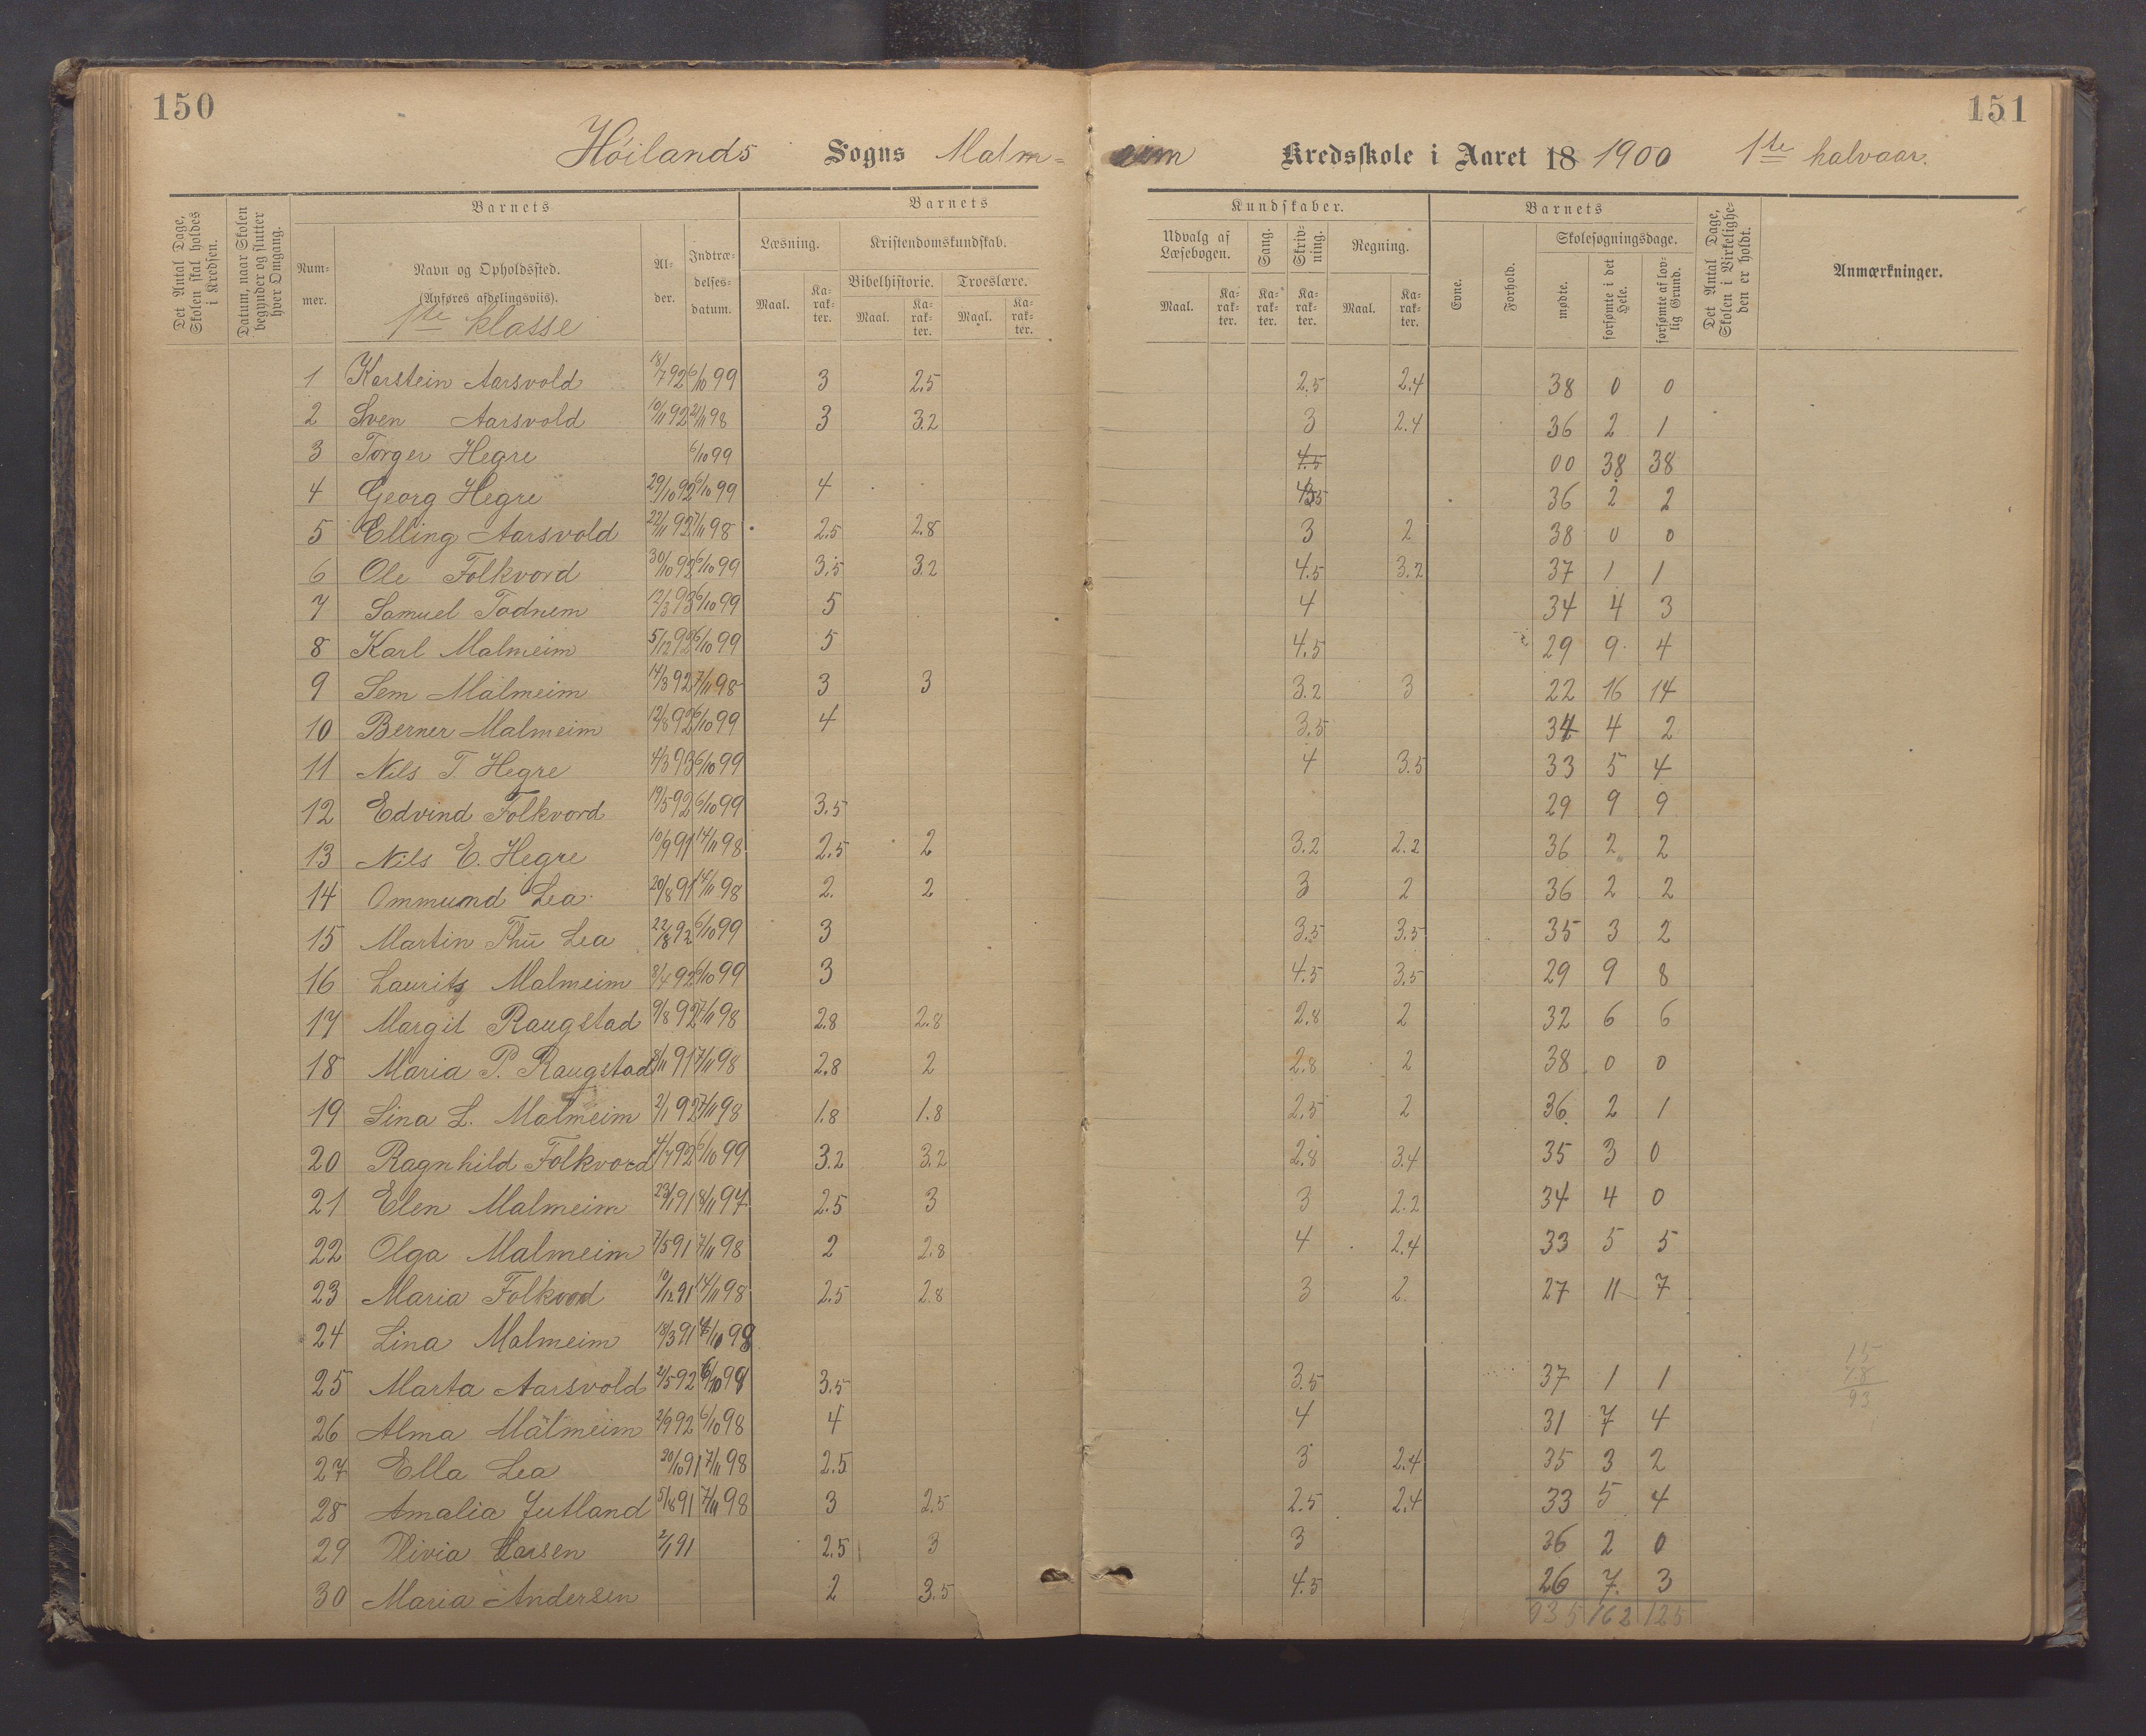 150
151
Höilands Sogns Malm= eim Kredsskole i Aaret 18 1900 1ste halvaar.
Det Antal Dage, Skolen skal holdes i Kredsen.
Datum, naar Skolen begynder og slutter hver Omgang.
Barnets
Num-mer.
Navn og Opholdssted.
(Anføres afdelingsviis).
1ste klasse
Al-der.
Indtræ-delses-datum.
Barnets
Læsning.
Maal.
Ka-rak-ter.
Kristendomskundskab.
Bibelhistorie.
Maal.
Ka-rak-ter.
Troeslære.
Maal.
Ka-rak-ter.
Kundskaber.
Udvalg af Læsebogen.
Maal.
Ka-rak-ter.
Sang.
Ka-rak-ter.
Skriv-ning.
Ka-rak-ter.
Regning.
Maal.
Ka-rak-ter.
Barnets
Evne.
Forhold.
Skolesøgningsdage.
mødte.
forsømte i det Hele.
forsømte af lov-lig Grund.
Det Antal Dage, Skolen i Virkelighe-den er holdt.
Anmærkninger.
1 Karstein Aarsvold 18/7 92 6/10 99 3 2.5 2.5 2.4 38 0 0
2 Sven Aarsvold 10/11 92 2/11 98 3 3.2 3 2.4 36 2 1
3 Torger Hegre 6/10 99 4.5 00 38 38
4 Georg Hegre 29/10 92 6/10 99 4 36 2 2
5 Elling Aarsvold 22/11 92 7/11 98 2.5 2.8 3 2 38 0 0
6 Ole Folkvord 30/10 92 6/10 99 3.5 3.2 4.5 3.2 37 1 1
7 Samuel Todnem 12/3 93 6/10 99 5 4 34 4 3
8 Karl Malmeim 5/12 92 6/10 99 5 4.5 29 9 4
9 Sem Malmeim 14/3 92 7/11 98 3 3 3.2 3 22 16 14
10 Berner Malmeim 12/8 92 6/10 99 4 3.5 34 4 2
11 Nils T Hegre 4/3 93 6/10 99 4 3.5 33 5 4
12 Edvind Folkvord 19/5 92 6/10 99 3.5 29 9 9
13 Nils E. Hegre 10/9 91 14/11 98 2.5 2 3.2 2.2 36 2 2
14 Ommund Lea 20/8 91 14/11 98 2. 2 3 2 36 2 2
15 Martin Thu Lea 22/8 92 6/10 99 3 3.5 3.5 35 3 2
16 Lauritz Malmeim 8/4 92 6/10 99 3 4.5 3.5 29 9 8
17 Margit Raugstad 9/8 92 7/11 98 2.8 2.8 2.8 2 32 6 6
18 Maria P. Raugstad 8/11 91 7/11 98 2.8 2 2.8 2 38 0 0
19 Sina L. Malmeim 2/1 92 7/11 98 1.8 1.8 2.5 2 36 2 1
20 Ragnhild Folkvord 4/7 92 6/10 99 3.2 3.2 2.8 3.4 35 3 0
21 Elen Malmeim 23/1 91 8/11 97 2.5 3 3 2.2 34 4 0
22 Olga Malmeim 7/5 91 7/11 98 2 2.8 4 2.4 33 5 5
23 Maria Folkvord 9/12 91 14/11 98 2.5 2.8 3 2. 27 11 7
24 Lina Malmeim 18/3 91
25 Marta Aarsvold 2/5 92 3.5 3.5 37 1 1
26 Alma Malmeim 2/9 92 6/10 98 4 4 31 7 4
27 Ella Lea 20/10 91 7/11 98 2.5 3 2.4 35 3 2
28 Amalia Jutland 5/8 91 7/11 98 3 2.5 2.5 2.4 33 5 4
29 Olivia Larsen 2/1 91 2.5 3 3 36 2 0
30 Maria Andersen 2 3.5 4.5 26 7. 3
935 162 125
15
78
93